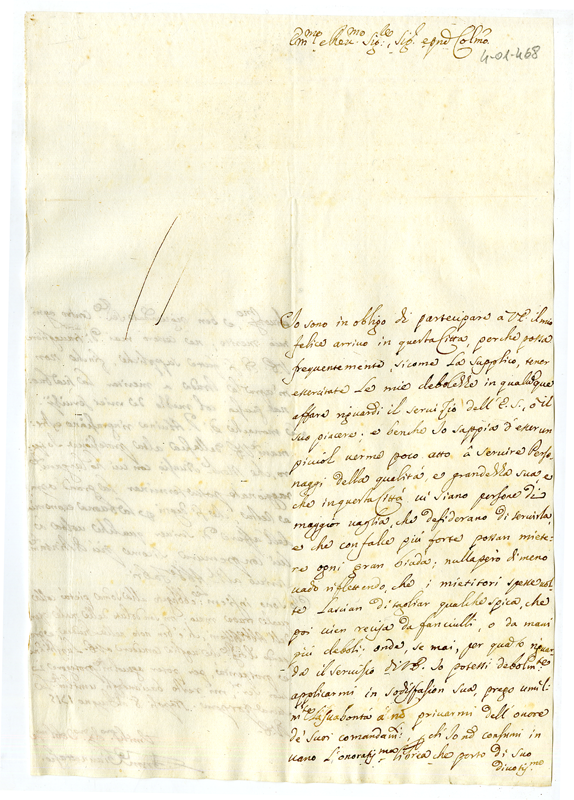 Em.mo e Rev.mo Sig.re, Sig.r e Pnẽ Col.mo
4-01-468
Io sono in obligo di partecipare a VE il mio
felice arrivo in questa Città, perche possa
frequentemente, sicome La supplico, tener
esercitate Le mie debolezze in qualunque
affare riguardi il servizio dell'E.S., ò il
suo piacere; e benche Io sappia d'esser un
picciol verme poco atto à servire Perso-
naggi della qualità, e grandezza sua, e
che in questa Città vi siano persone di
maggior vaglia, che desiderano di servirla,
e che con falce più forte possan miete-
re ogni gran biada; nulla però di meno
vado riflettendo, che i mietitori spesse vol-
te Lascian di tagliar qualche spica, che
poi vien recisa da fanciulli, o da mani
più deboli: onde se mai, per quanto riguar-
da il servisio di VE. Io potessi debolm.te
applicarmi in sodisfasion sua, prego umil-
m.te La sua bontà à nõ privarmi dell'onore
de' suoi comandam.ti, chi Io nõ consumi in
vano L'onoratis.ma Livrea che porto di suo
divotis.mo